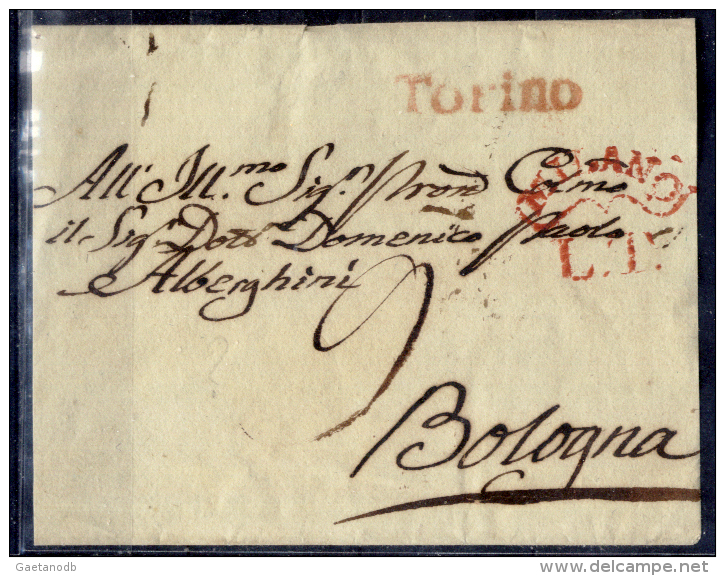 Torino
MILANO
L.T.
All' Ill.mo Sig.r Pron Colmo
il Sig.r Dott.r Domenico Paolo
Alberghini
9
Bologna
Gaetanodb
delcampe.net